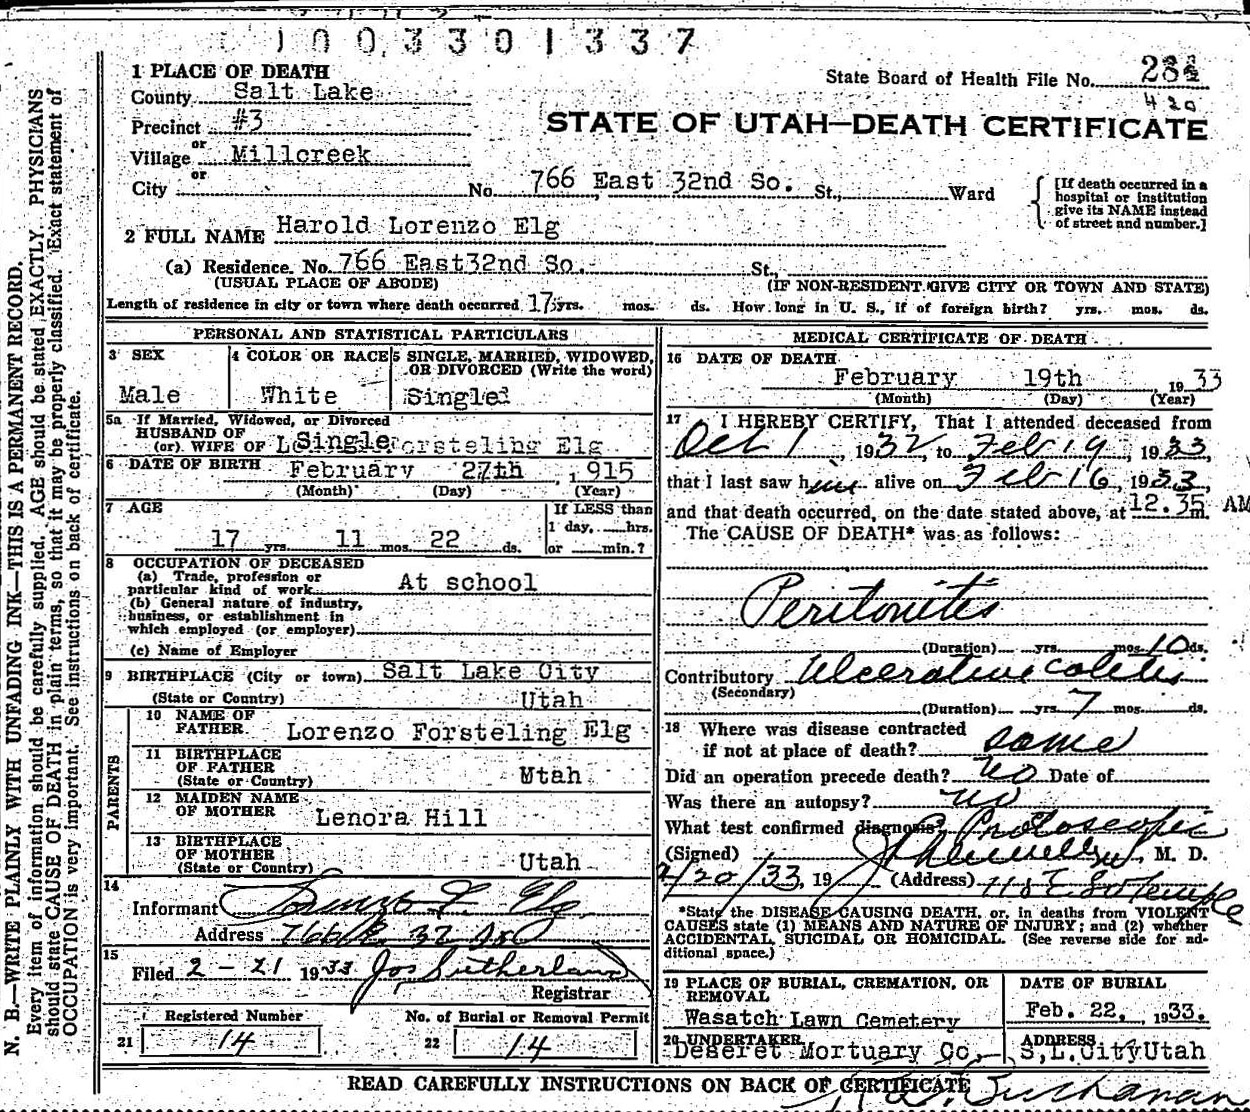 1003301337
1 PLACE OF DEATH
State Board of Health File No.
County Salt Lake
420
Precinct #3
STATE OF UTAH—DEATH CERTIFICATE
or
Village Millcreek
or
City No. 766 East 32nd So. St., Ward
[If death occurred in a
hospital or institution
give its NAME instead
of street and number.]
2 FULL NAME Harold Lorenzo Elg
(a) Residence. No. 766 East32nd So. St.,
(USUAL PLACE OF ABODE) (IF NON-RESIDENT GIVE CITY OR TOWN AND STATE)
Length of residence in city or town where death occurred 17 yrs. mos. ds. How long in U. S., if of foreign birth? yrs. mos. ds.
PERSONAL AND STATISTICAL PARTICULARS
3 SEX
Male
4 COLOR OR RACE
White
5 SINGLE, MARRIED, WIDOWED,
OR DIVORCED (Write the word)
Singled
5a If Married, Widowed, or Divorced
HUSBAND OF
(or) WIFE OF Single orsteling Elg
6 DATE OF BIRTH February 27th , 1915
(Month) (Day) (Year)
7 AGE
17 yrs. 11 mos. 22 ds.
If LESS than
1 day, hrs.
or min.?
8 OCCUPATION OF DECEASED
(a) Trade, profession or
particular kind of work At school
(b) General nature of industry,
business, or establishment in
which employed (or employer)
(c) Name of Employer
9 BIRTHPLACE (City or town) Salt Lake City
(State or Country) Utah
PARENTS
10 NAME OF
FATHER Lorenzo Forsteling Elg
11 BIRTHPLACE
OF FATHER
(State or Country) Utah
12 MAIDEN NAME
OF MOTHER Lenora Hill
13 BIRTHPLACE
OF MOTHER
(State or Country) Utah
14
Informant Lorenzo F. Elg
Address 766 E. 32 So
15
Filed 2-21 1933 Jos Sutherland
Registrar
Registered Number
21 14
No. of Burial or Removal Permit
22 14
MEDICAL CERTIFICATE OF DEATH
16 DATE OF DEATH
February 19th , 1933
(Month) (Day) (Year)
17 I HEREBY CERTIFY, That I attended deceased from
Oct 1, 1932, to Feb 19, 1933,
that I last saw him alive on Feb 16, 1933,
and that death occurred, on the date stated above, at 12.35 m. AM
The CAUSE OF DEATH* was as follows:
Peritonitis
(Duration) yrs. mos. 10 ds.
Contributory Ulcerative colitis
(Secondary)
(Duration) yrs. 7 mos. ds.
18 Where was disease contracted
if not at place of death? same
Did an operation precede death? no Date of
Was there an autopsy? no
What test confirmed diagnosis? Protoscopic
(Signed) M. D.
2/20/33, 19 (Address) 118 E So Temple
*State the DISEASE CAUSING DEATH, or, in deaths from VIOLENT
CAUSES state (1) MEANS AND NATURE OF INJURY; and (2) whether
ACCIDENTAL, SUICIDAL OR HOMICIDAL. (See reverse side for ad-
ditional space.)
19 PLACE OF BURIAL, CREMATION, OR
REMOVAL
Wasatch Lawn Cemetery
DATE OF BURIAL
Feb. 22, 1933.
20 UNDERTAKER
Deseret Mortuary Co.
ADDRESS
S,L.CityUtah
READ CAREFULLY INSTRUCTIONS ON BACK OF CERTIFICATE
Buchanan
N. B.—WRITE PLAINLY WITH UNFADING INK—THIS IS A PERMANENT RECORD.
Every item of information should be carefully supplied. AGE should be stated EXACTLY. PHYSICIANS
should state CAUSE OF DEATH in plain terms, so that it may be properly classified. Exact statement of
OCCUPATION is very important. See instructions on back of certificate.